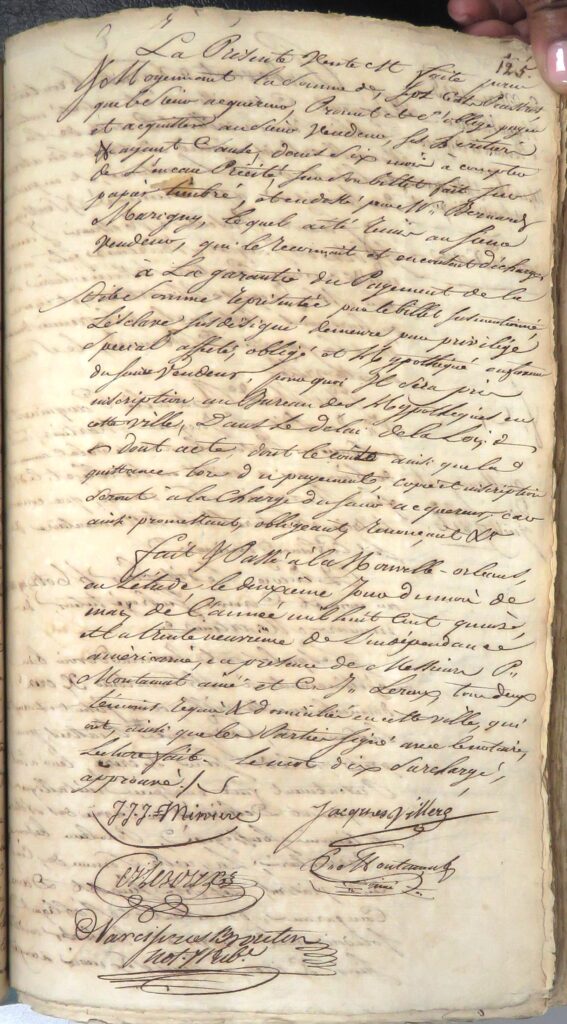 125.
La Présente Vente est faite pour
& Moyennant la Somme de, Sept Cents Piastres,
que le Sieur acquereur, Promet et s'oblige payer
et acquitter au Sieur Vendeur, ses héritiers
& ayant Cause, dans six mois à compter
de papier timbré, endossé par Mr. Bernard
Marigny, lequel a été remis au Sieur
Vendeur, qui le reconnoit et en content décharge,
à La garantie du Payement de la
Somme représentée par le billet susmentionné,
L'esclave susdésigné demeure par privilége
Spécial affecté, obligé et Hypothéqué en faveur
du Sieur Vendeur, pourquoi Il sera pris
inscription au Bureau des Hypothèques en
cette ville, Dans le délai de la Loi,
dont acte dont le coût ainsi que la
quittance lors du payement, copie et inscription
Seront à la Charge du Sieur acquereur, car
ainsi promettant, obligeant, Renonçant &a
fait & Passé à la Nouvelle-orléans,
en l'étude, le deuxieme Jour du mois de
mai, de l'année mil huit cent quinze,
et la trente neuvieme de L'indépendance
américaine, en présence de Messieurs P.
Montamat ainé et Ch. Jn. Leroux, tous deux
témoins requis & domiciliés en cette ville, qui
ont, ainsi que les Parties Signé avec le notaire,
Lecture faite. Le mot dix Surchargé,
approuvé ./.
J.J.J. Miniere
Jacques Villeré
Montamat
ainé
Narcissus Broutin
Not. Pub.